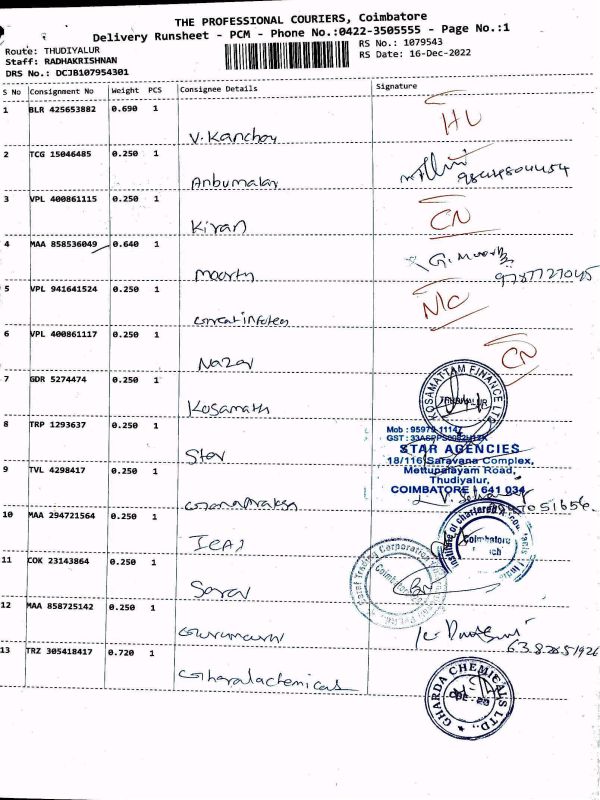 THE PROFESSIONAL COURIERS, Coimbatore
Delivery Runsheet - PCM - Phone No.:0422-3505555 - Page No.:1
Route: THUDIYALUR
RS No.: 1079543
Staff: RADHAKRISHNAN
RS Date: 16-Dec-2022
DRS No.: DCJB107954301
S No Consignment No Weight PCS Consignee Details Signature
1 BLR 425653882 0.690 1
V. Kanchay HU
2 TCG 15046485 0.250 1
Anbumalar
3 VPL 400861115 0.250 1
Kiran CN
4 MAA 858536049 0.640 1
Moorth G. Moorth
9787727045
5 VPL 941641524 0.250 1
Great infotech N/C
6 VPL 400861117 0.250 1
Nazar CN
7 GDR 5274474 0.250 1
Kosamath
KOSAMATTAM FINANCE LTD
THUDIYALUR
8 TRP 1293637 0.250 1
Star
STAR AGENCIES
18/116 Saravana Complex,
Mettupalayam Road,
Thudiyalur,
COIMBATORE 641 034
9 TVL 4298417 0.250 1
10 MAA 294721564 0.250 1
ICAI
Institute of chartered
Coimbatore
11 COK 23143864 0.250 1
Saraf
Saraf Trading Corporation
Coimbatore
12 MAA 858725142 0.250 1
Gurumurthi
13 TRZ 305418417 0.720 1
Gharalachemicals
GHARDA CHEMICALS LTD.,
CBE - 29